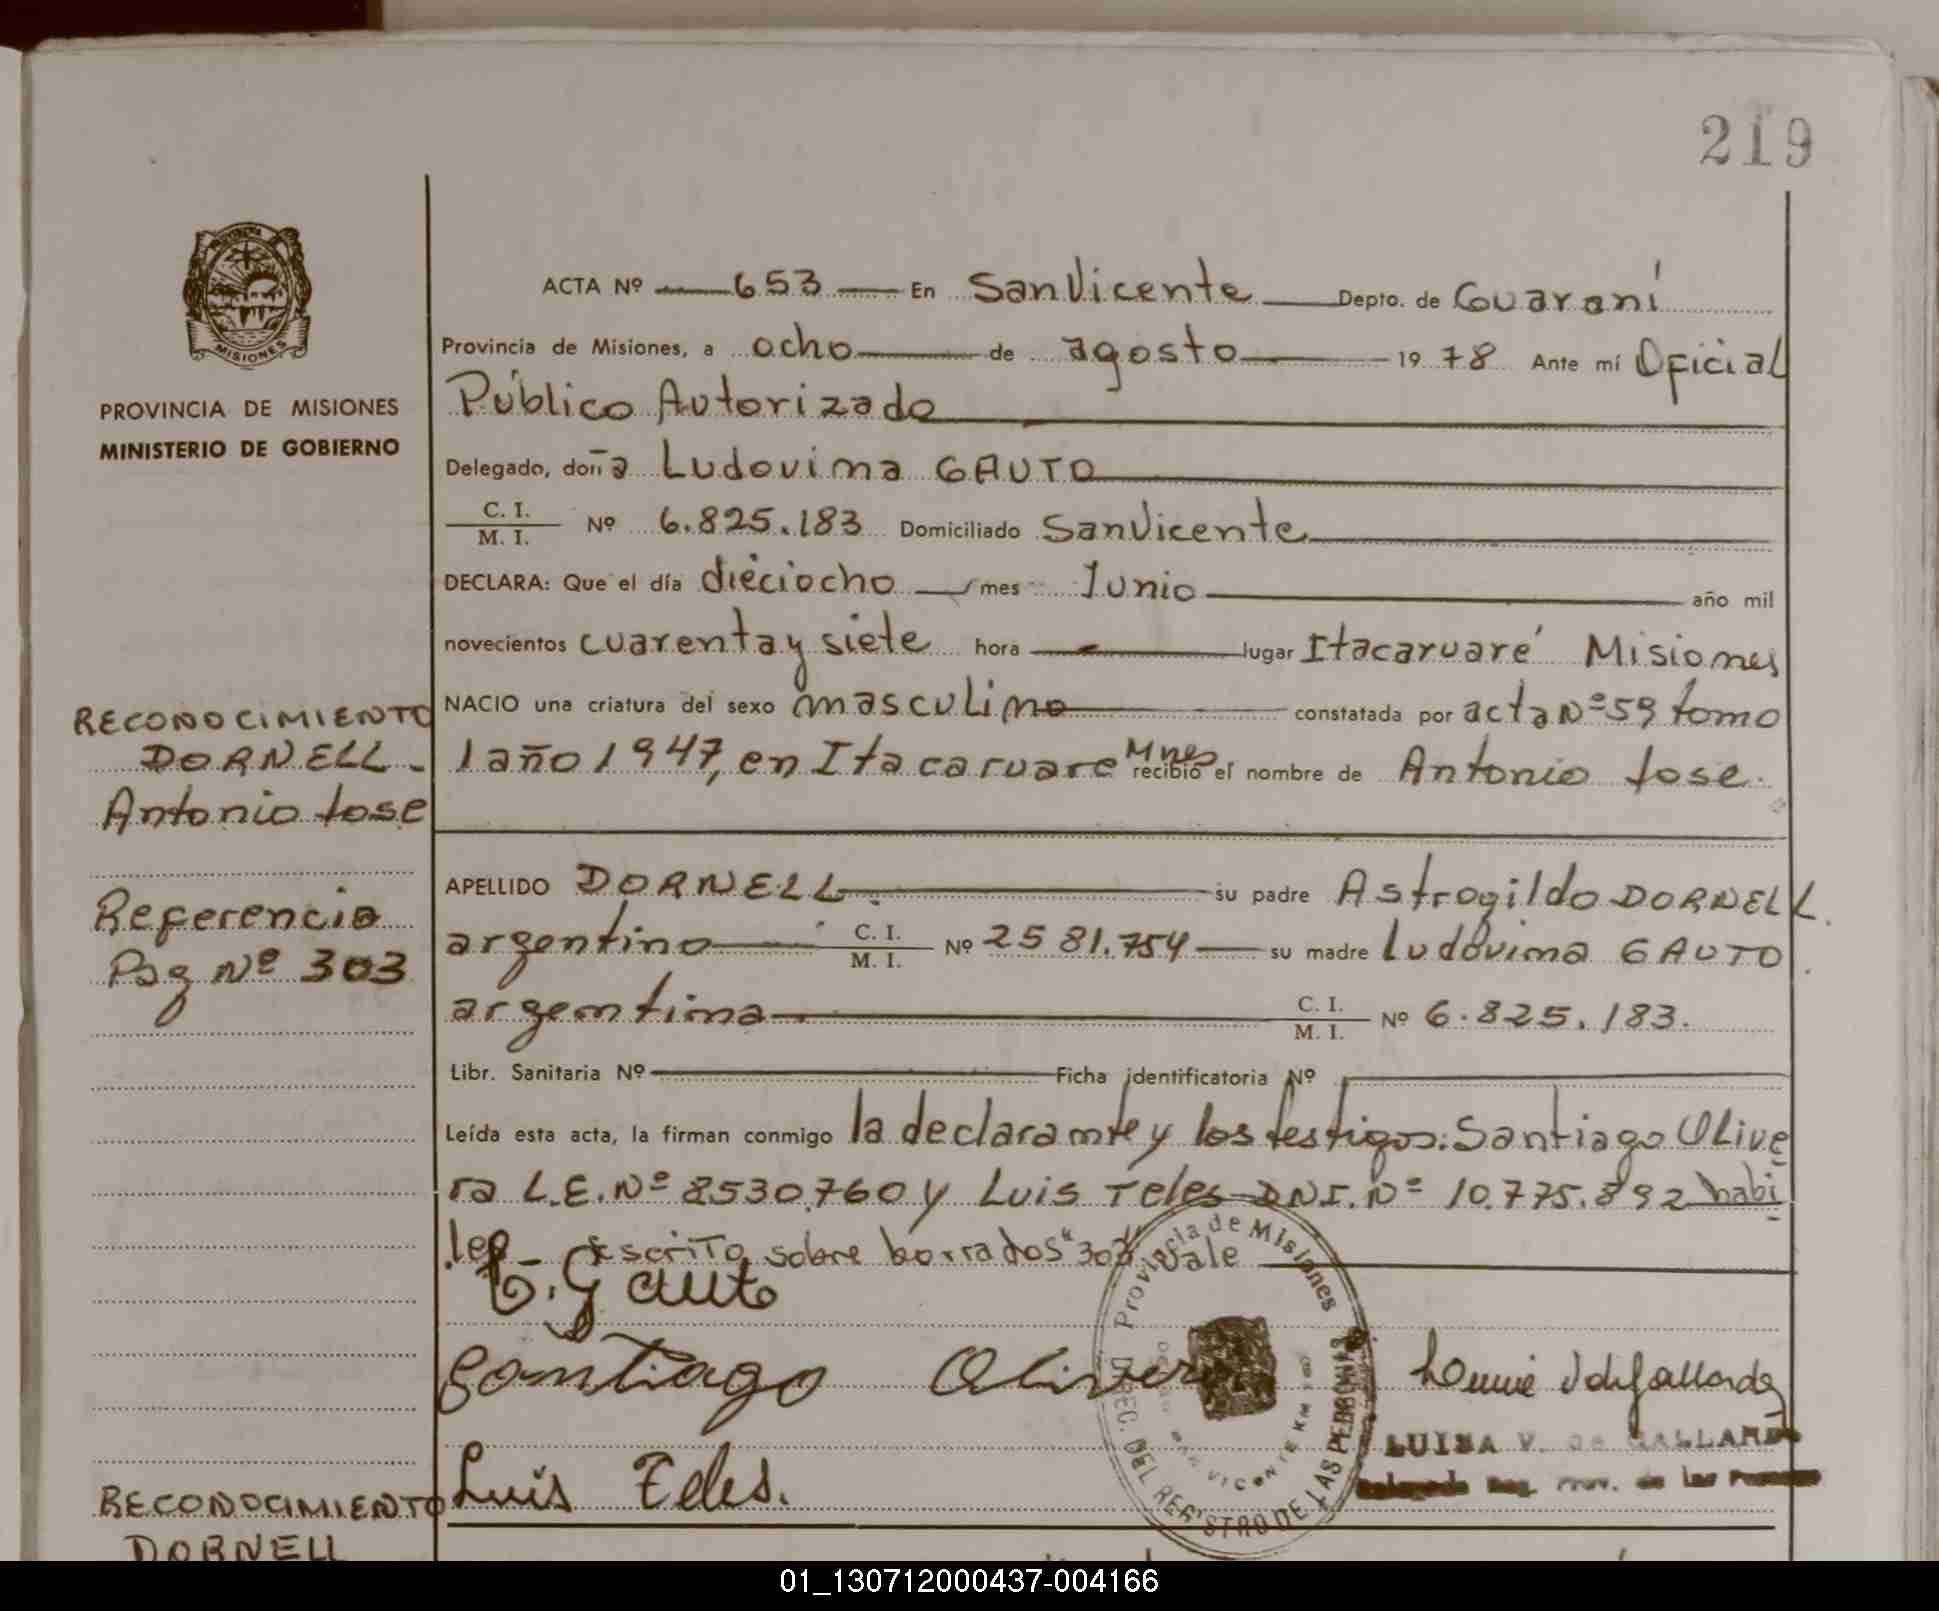 219
PROVINCIA DE MISIONES
MINISTERIO DE GOBIERNO
MISIONES
ACTA Nº 653 En San Vicente Depto. de Guaraní
Provincia de Misiones, a ocho de agosto 1978 Ante mí Oficial
Público Autorizado
Delegado, doña Ludovima GAUTO
C. I.
M. I. Nº 6.825.183 Domiciliado San Vicente
DECLARA: Que el día dieciocho mes Junio año mil
novecientos cuarenta y siete hora lugar Itacaruaré Misiones
NACIO una criatura del sexo masculino constatada por acta Nº 59 tomo
1 año 1947, en Itacaruare Mnes recibió el nombre de Antonio Jose
APELLIDO DORNELL su padre Astrogildo DORNELL
argentino C. I. M. I. Nº 2581.754 su madre Ludovima GAUTO
argentina C. I. M. I. Nº 6.825.183.
Libr. Sanitaria Nº Ficha identificatoria Nº
Leída esta acta, la firman conmigo la declarante y los testigos: Santiago Olive
ra L.E. Nº 8530.760 y Luis Teles DNI. Nº 10.775.892 habi
les Escrito sobre borrados "303" Vale
RECONOCIMIENTO
DORNELL-
Antonio Jose
Referencia
Pag Nº 303
L. Gauto
Santiago Olivera
Luis Teles.
Provincia de Misiones
DIREC. DEL REGISTRO DE LAS PERSONAS
SAN VICENTE KM
LUISA V. DE GALLARDO
Delegada Reg. Prov. de las Personas
RECONOCIMIENTO
DORNELL
01_130712000437-004166